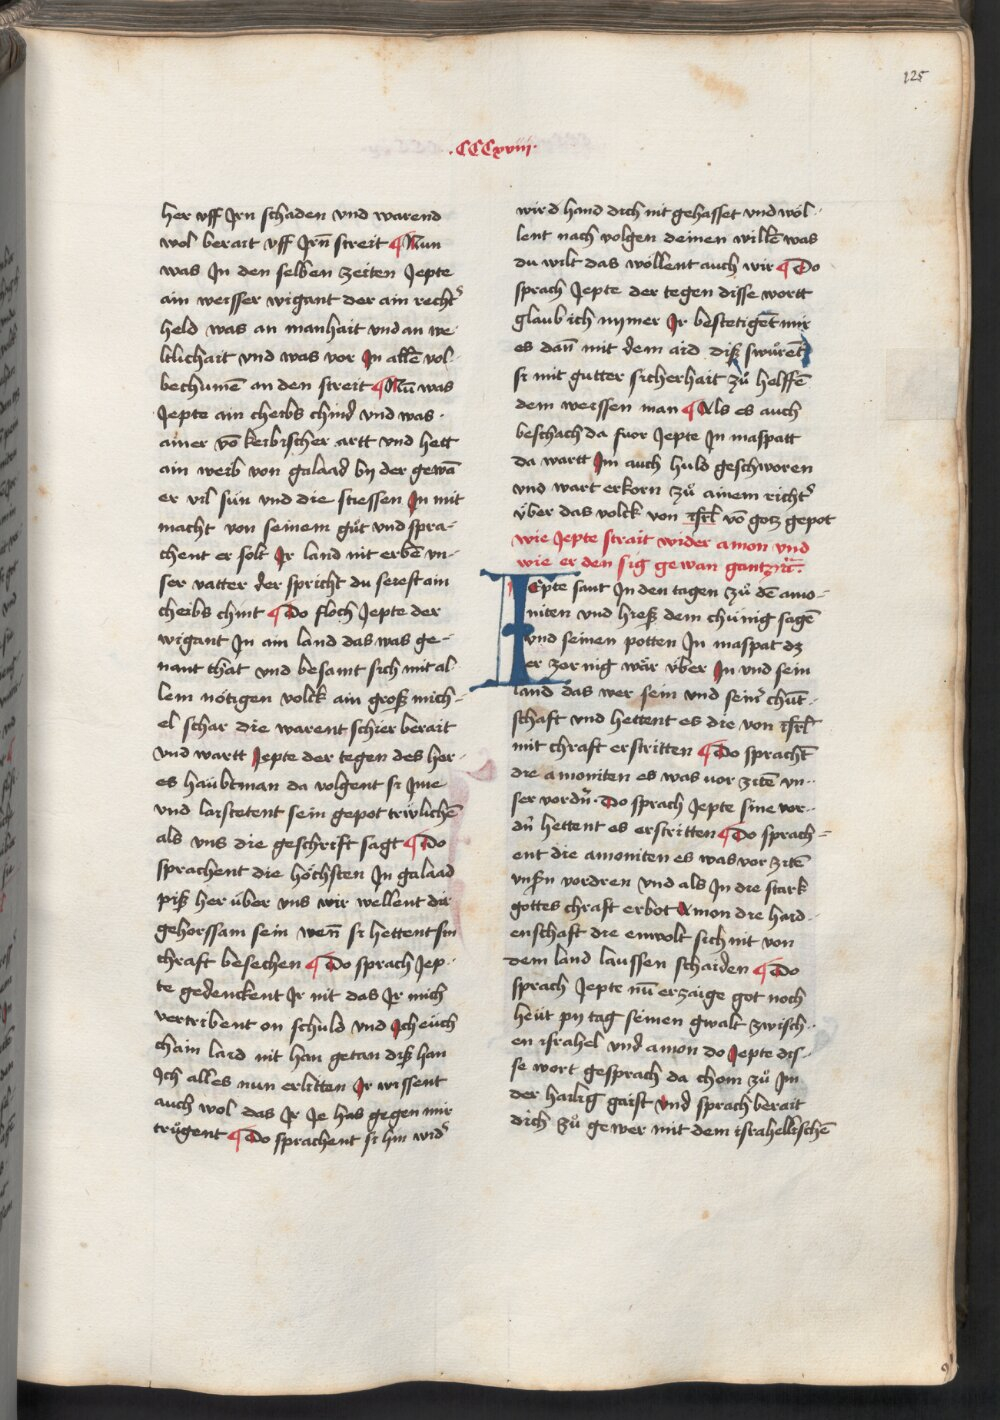 125
.CCCxviij.
her vff Jrn schaden vnd warend
wol berait vff Jrn̄ streit ¶ Nun
was In den selben zeiten Jepte
ain weisser wigant der ain recht᷒
held was an manhait vnd an we-
ltlichait vnd was vor In allē vol-
bechumē an den streit ¶ Nū was
Jepte ain chebs chind vnd was.
ainer vō keibischer artt vnd hett
ain weib von galaad by der gewā
er vil sün vnd die stiessen In mit
macht von seinem gůt vnd spra-
chent er solt Jr land nit erbē vn-
ser vatter der spricht du seiest ain
chebs chint ¶ Do floch Jepte der
wigant In ain land das was ge-
nant that vnd besamt sich mit al
lem nötigen volck ain groß mich-
el schar die warent schier berait
vnd wartt Jepte der tegen des her-
es haübtman da volgent si Jme
vnd laistetent sein gepot triwlichē
als vns die geschrift sagt ¶ Do
sprachent die höchsten In galaad
piß her über vns wir wellent dir
gehorssam sein wen̄ si hettent sin
chraft besechen ¶ Do sprach Jep-
te gedenckent Jr nit das Jr mich
vertribent on schuld vnd Ich eüch
chain laid nit han getan diß han
Ich alles nun erlitten Jr wissent
auch wol das Jr Je has gegen mir
trügent ¶ Do sprachent si hin wid᷒
wird hand dich nit gehasset vnd wöl-
lent nach volgen deinen willē was
du wilt das wöllent auch wir ¶ Do
sprach Jepte der tegen disse wortt
glaub ich nymer Jr bestetigēt mir
es dan̄ mit dem aid diß swürēt
si mit gutter sicherhait zů helffē
dem weissen man ¶ Als es auch
beschach da fuor Jepte In maspatt
da wartt Im auch huld geschworen
vnd wart erkorn zů ainem richt᷒
über das volck von isrl̄ vō gotz gepot
wie Jepte strait wider amon vnd
wie er den sig gewan
IEpte sant In den tagen zů dē amo-
niten vnd hieß dem chünig sagē
vnd seinen potten In maspat dz
er zornig wär über In vnd sein
land das wer sein vnd sein᷒ chūt-
schaft vnd hettent es die von isrl̄
mit chraft erstritten ¶ Do sprachēt
die amoniten es was vor zitē vn-
ser vordn̄. Do sprach Jepte sine vor-
dn̄ hettent es erstritten ¶ Do sprach-
ent die amoniten es was vor zitē
vnsn̄ vordren vnd als In die stark
gottes chraft erbot Amon die haid-
enschaft die enwolt sich nit von
dem land laussen schaiden ¶ Do
sprach Jepte nū erzaige got noch
heüt pn tag seinen gwalt zwisch-
en israhel vnd amon do Jepte dis-
se wort gesprach da chom zů Im
der hailig gaist vnd sprach berait
dich zů gewer mit dem israhellischē